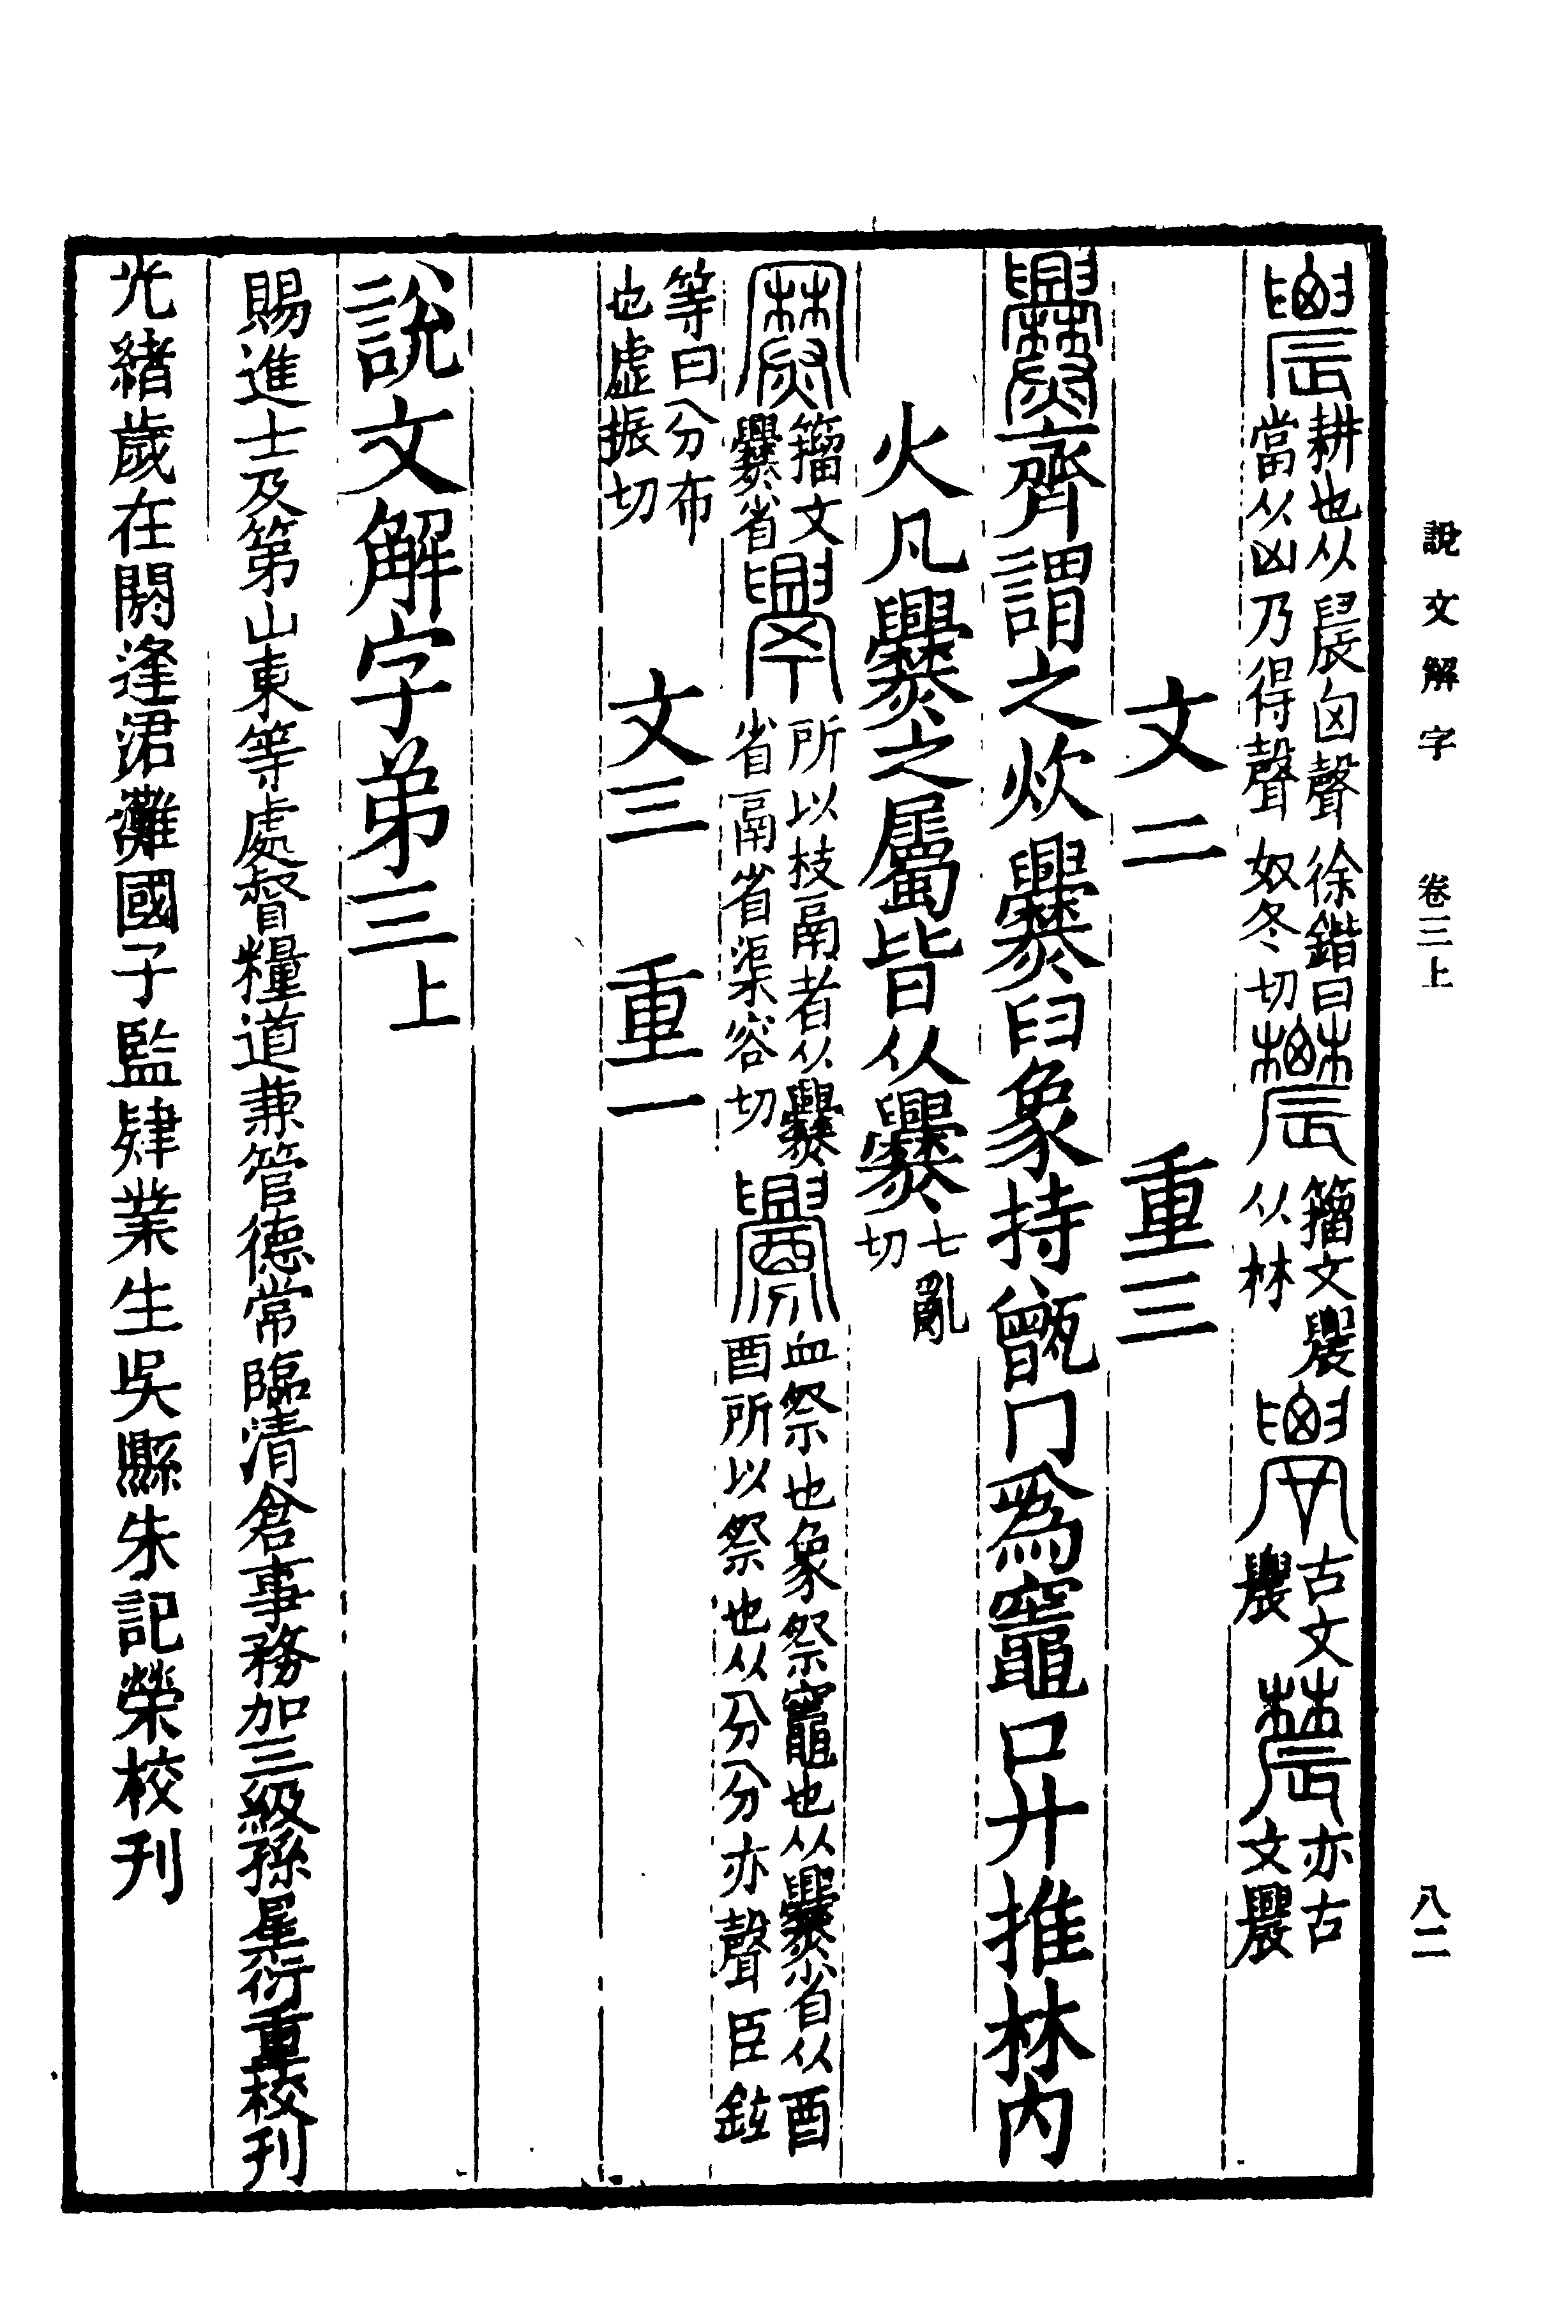 說文解字 卷三上 八二
䢅耕也从䢅囟聲徐鍇曰當从凶乃得聲奴冬切 籒文農从林 古文農 亦古文農
文二 重三
爨齊謂之炊爨𦥑象持甑冂爲竈口廾推林内
火凡爨之屬皆从爨七亂切
籒文爨省 所以枝鬲者从爨省鬲省渠容切 釁血祭也象祭竈也从爨省从酉酉所以祭也从分分亦聲臣鉉
等曰分布也虛振切 文三 重一
說文解字弟三上
賜進士及第山東等處督糧道兼管德常臨清倉事務加三級孫星衍重校刊
光緒歲在閼逢涒灘國子監肄業生吳縣朱記榮校刊